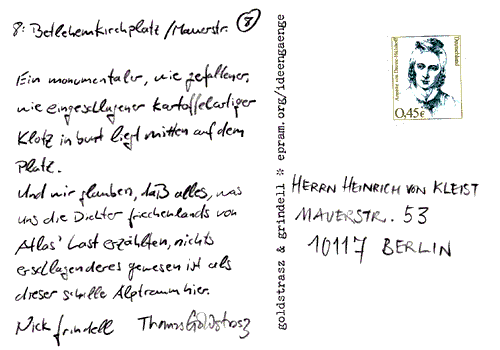 8: Betlehemkirchplatz / Mauerstr. 7
Ein monumentaler, wie gefallener,
wie eingeschlagener kartoffelartiger
Klotz in bunt liegt mitten auf dem
Platz.
Und wir glauben, daß alles, was
uns die Dichter Griechenlands von
Atlas' Last erzählten, nichts
erschlagenderes gewesen ist als
dieser schrille Alptraum hier.
Nick Grindell Thomas Goldstrasz
goldstrasz & grindell * epram.org/ideengaenge
Deutschland
0,45€
HERRN HEINRICH VON KLEIST
MAUERSTR. 53
10117 BERLIN